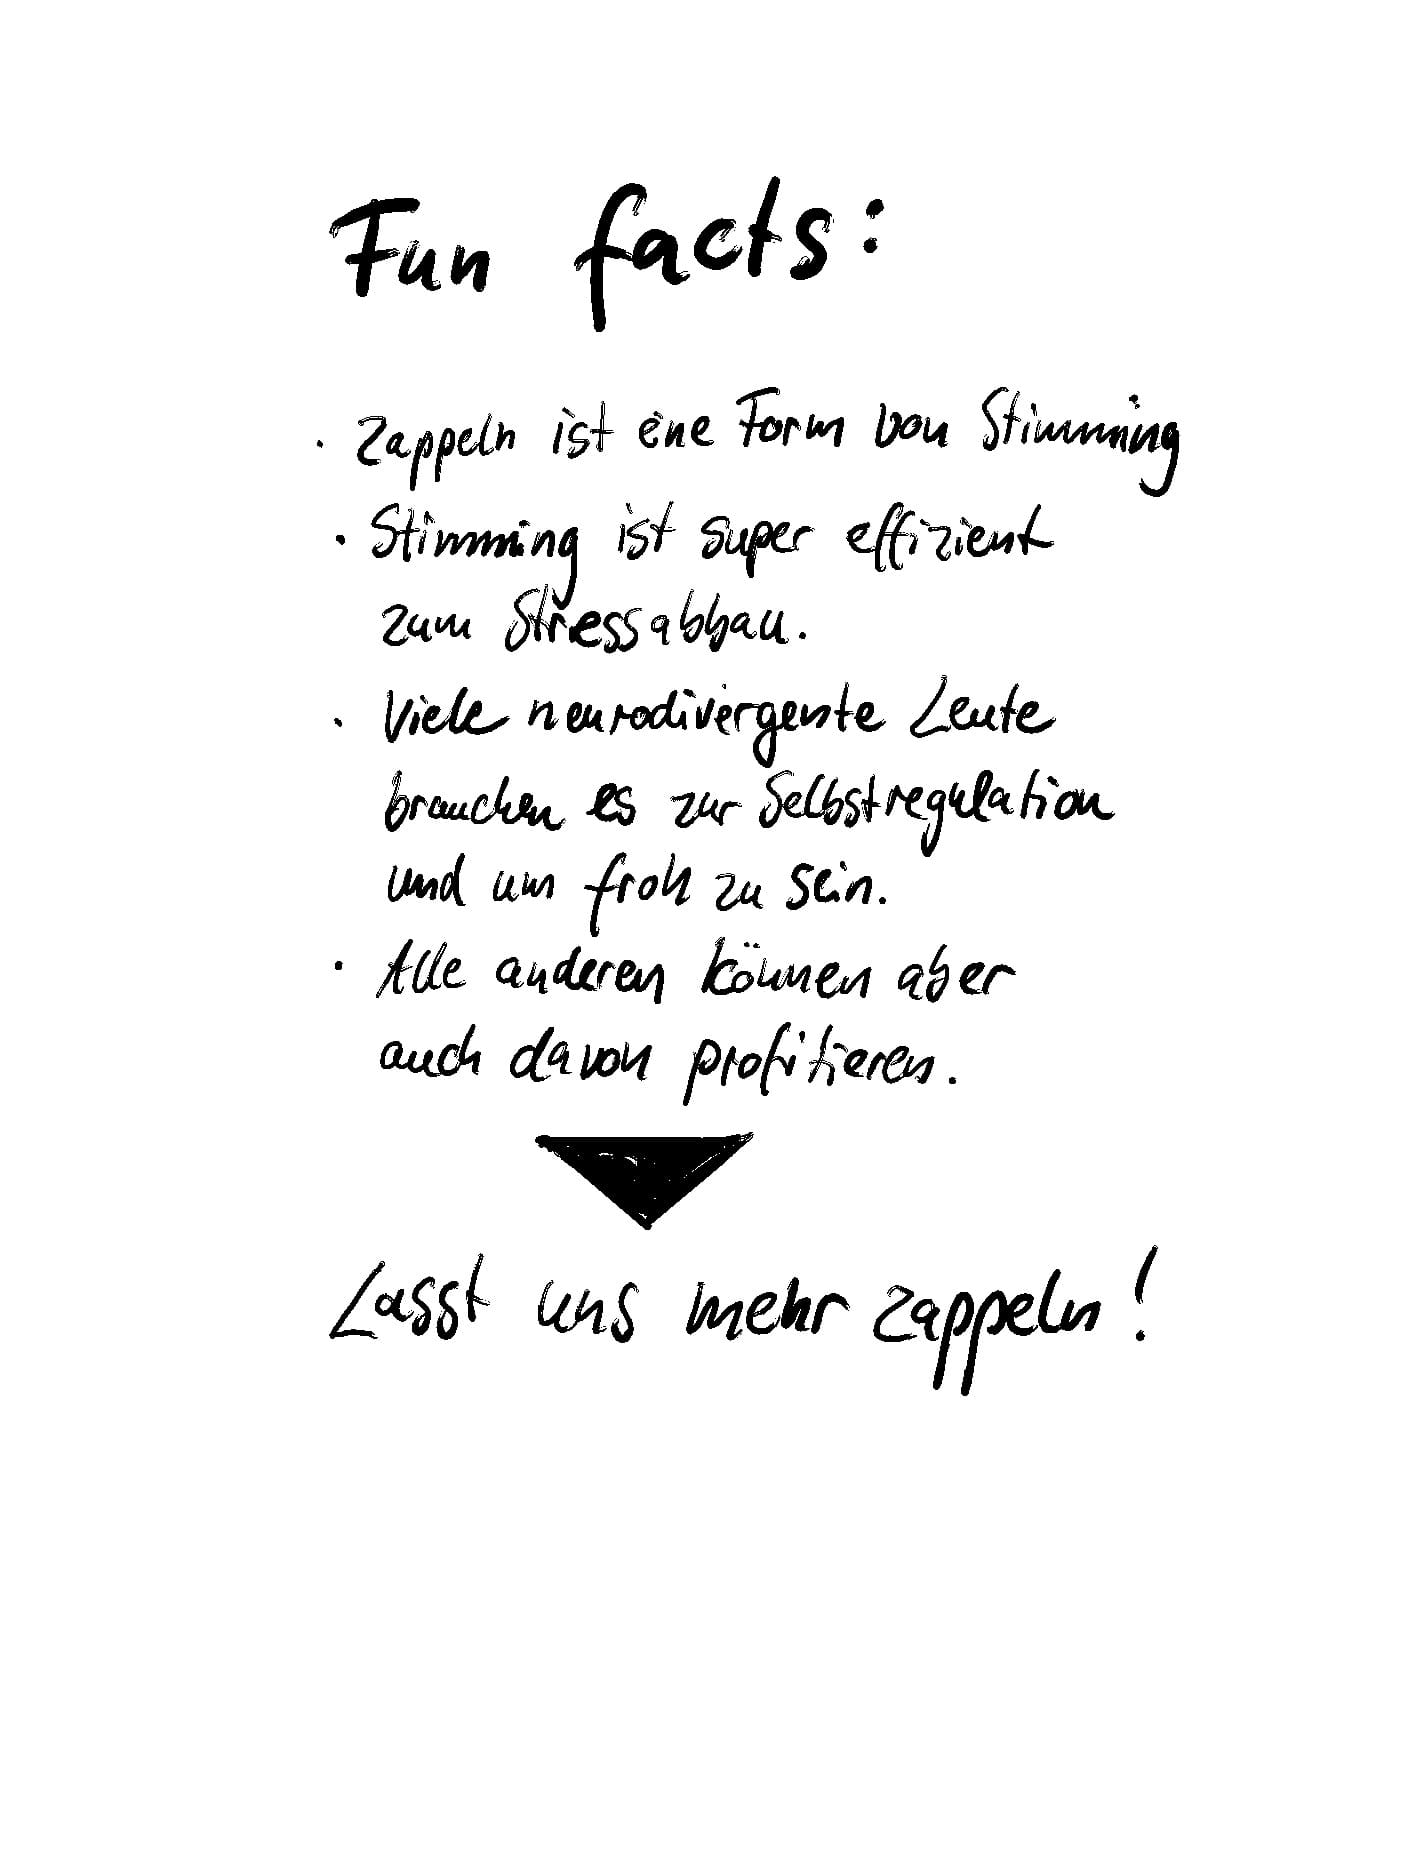 Fun facts:
· Zappeln ist eine Form von Stimming
· Stimming ist super effizient
zum Stressabbau.
· Viele neurodivergente Leute
brauchen es zur Selbstregulation
und um froh zu sein.
· Alle anderen können aber
auch davon profitieren.
Lasst uns mehr zappeln!